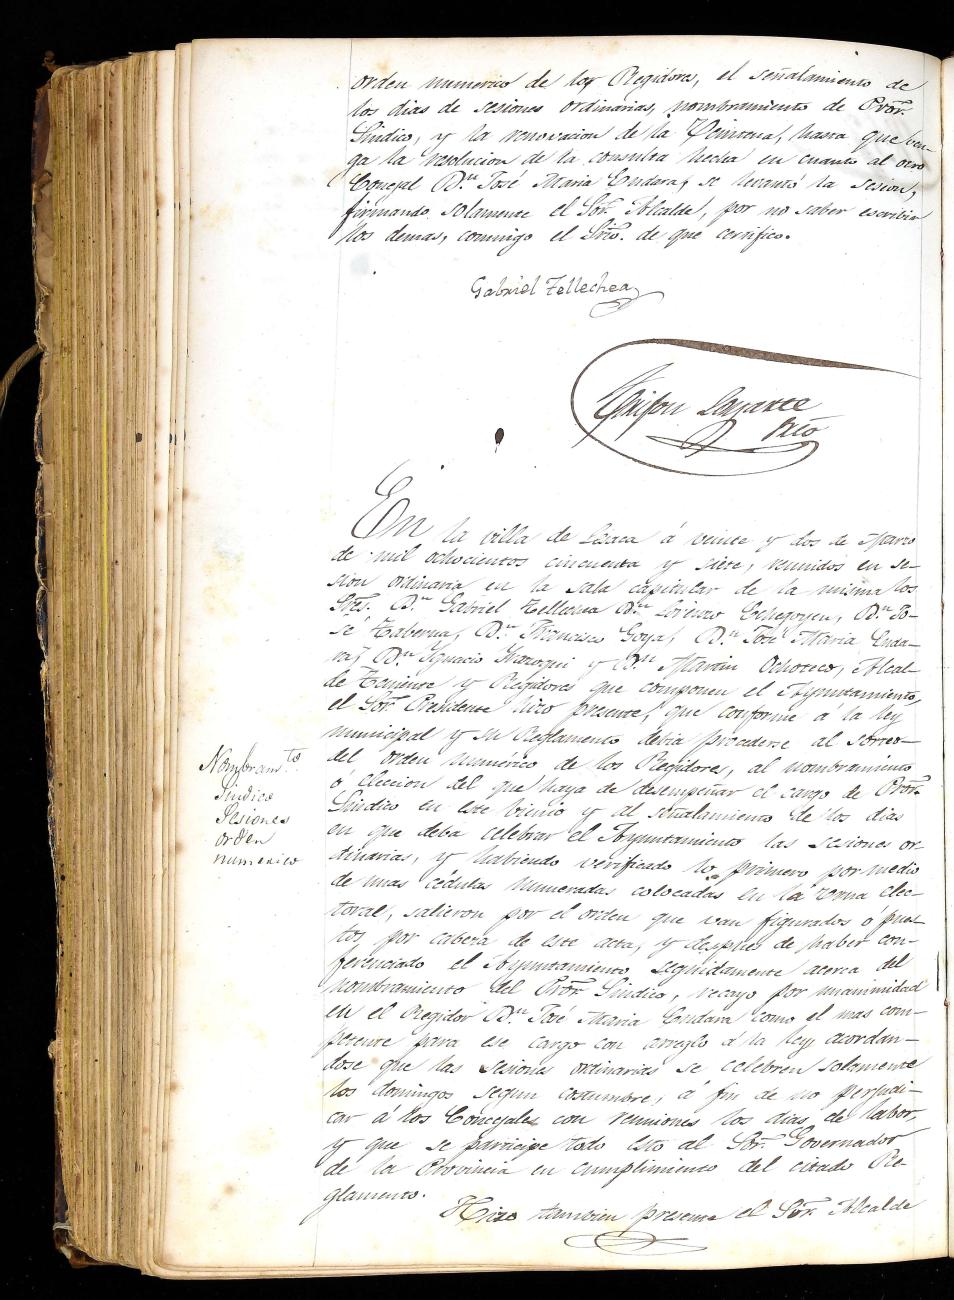 orden numerico de los Regidores, el señalamiento de
los dias de sesiones ordinarias, nombramiento de Pror.
Síndico, y la renovacion de la Veintena, hasta que ven-
ga la resolucion de la consulta hecha en cuanto al otro
Concejal Dn. José Maria Endara, se levantó la sesion,
firmando solamente el Sor. Alcalde, por no saber escribir
los demas, conmigo el Srio. de que certifico.
Gabriel Tellechea
Lazarte
Srio
En la villa de Lesaca á veinte y dos de Marzo
de mil ochocientos cincuenta y siete, reunidos en se-
sion ordinaria en la sala capitular de la misma los
Sres. Dn. Gabriel Tellechea Dn. Lorenzo Echegoyen, Dn. Jo-
sé Taberna, Dn. Francisco Goya, Dn. José Maria Enda-
ra, Dn. Ignacio Irazoqui y Dn. Martin Ochoteco, Alcal-
de Teniente y Regidores que componen el Ayuntamiento,
el Sor. Presidente hizo presente, que conforme á la ley
municipal y su Reglamento debia procederse al sorteo
del orden numérico de los Regidores, al nombramiento
ó eleccion del que haya de desempeñar el cargo de Pror.
Síndico en este bienio y al señalamiento de los dias
en que deba celebrar el Ayuntamiento las sesiones or-
dinarias, y habiendo verificado lo primero por medio
de unas cédulas numeradas colocadas en la Urna elec-
toral, salieron por el orden que van figurados ó pues-
tos por cabeza de este acta, y despues de haber con-
ferenciado el Ayuntamiento seguidamente acerca del
nombramiento del Pror. Síndico, recayó por unanimidad
en el Regidor Dn. José Maria Endara como el mas com-
petente para ese cargo con arreglo á la ley acordan-
dose que las sesiones ordinarias se celebren solamente
los domingos segun costumbre, á fin de no perjudi-
car á los Concejales con reuniones los dias de labor,
y que se participe todo esto al Sor. Governador
de la Provincia en cumplimiento del citado Re-
glamento.
Hizo tambien presente el Sor. Alcalde
Nombramto.
Sindico
Sesiones
orden
numerico